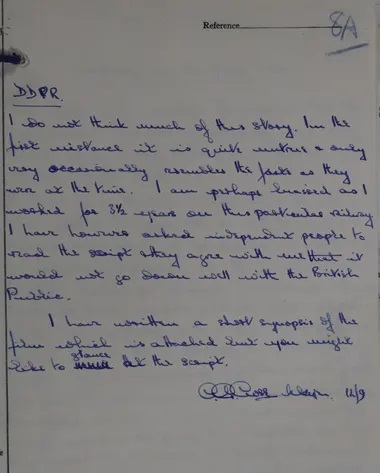 Reference
8A
DDPR.
I do not think much of this story. In the
first instance it is quite untrue & only
very occasionally resembles the facts as they
were at the time. I am perhaps biased as I
worked for 3½ years on this particular railway
I have however asked independent people to
read the script & they agree with me that it
would not go down well with the British
Public.
I have written a short synopsis of the
film which is attached but you might
like to glance at the script.
Major 12/9